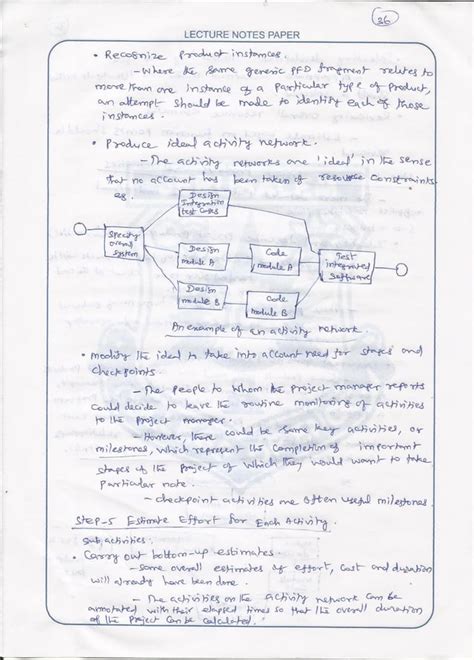 36
LECTURE NOTES PAPER
• Recognize product instances.
– Where the same generic PFD fragment relates to
more than one instance of a particular type of product,
an attempt should be made to identify each of those
instances.
• Produce ideal activity network.
– The activity networks are 'ideal' in the sense
that no account has been taken of resource constraints
eg.
Design
Integration
test cases
Specify
overall
system
Design
module A
Code
module A
Test
integrated
Software
Design
module B
Code
module B
An example of an activity network.
• modify the ideal to take into account need for stages and
checkpoints.
– The people to whom the project manager reports
could decide to leave the routine monitoring of activities
to the project manager.
– However, there could be some key activities, or
milestones, which represent the completion of important
stages of the project of which they would want to take
particular note.
– checkpoint activities are often useful milestones.
Step-5 Estimate Effort for Each Activity.
Sub activities:
• Carry out bottom-up estimates
– some overall estimates of effort, cost and duration
will already have been done.
– The activities on the activity network can be
annotated with their elapsed times so that the overall duration
of the project can be calculated.